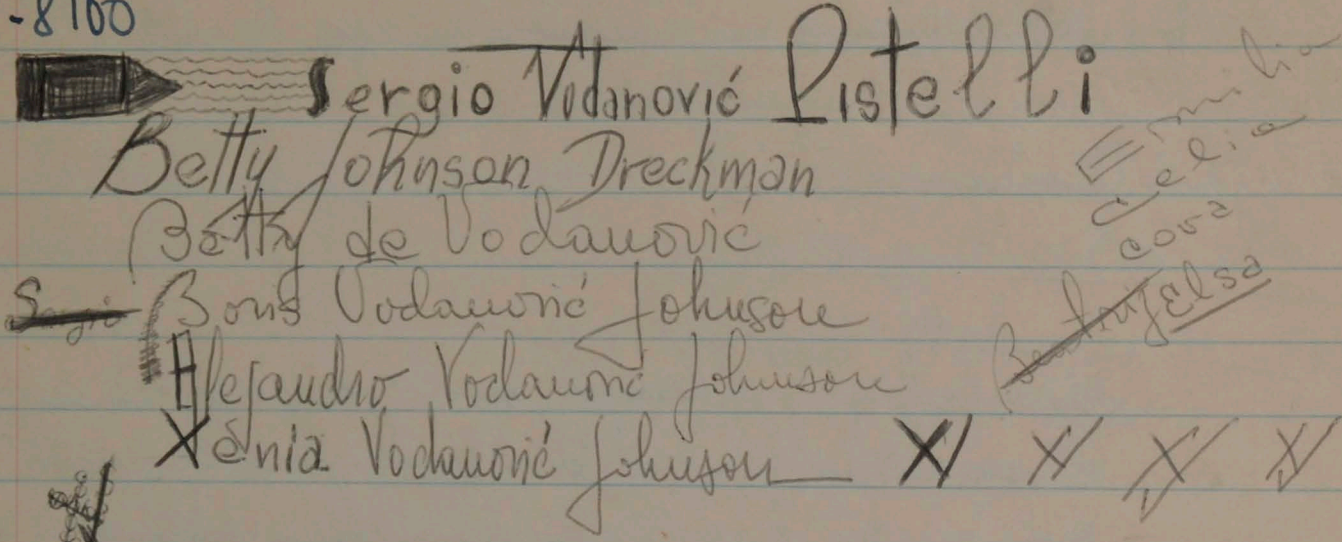 -8100
Sergio Vodanović Pistelli
Betty Johnson Dreckman
Betty de Vodanović
Sergio Boris Vodanović Johnson
Alejandro Vodanović Johnson
Xenia Vodanović Johnson
Emilia
Celia
cora
Beatriz Elsa